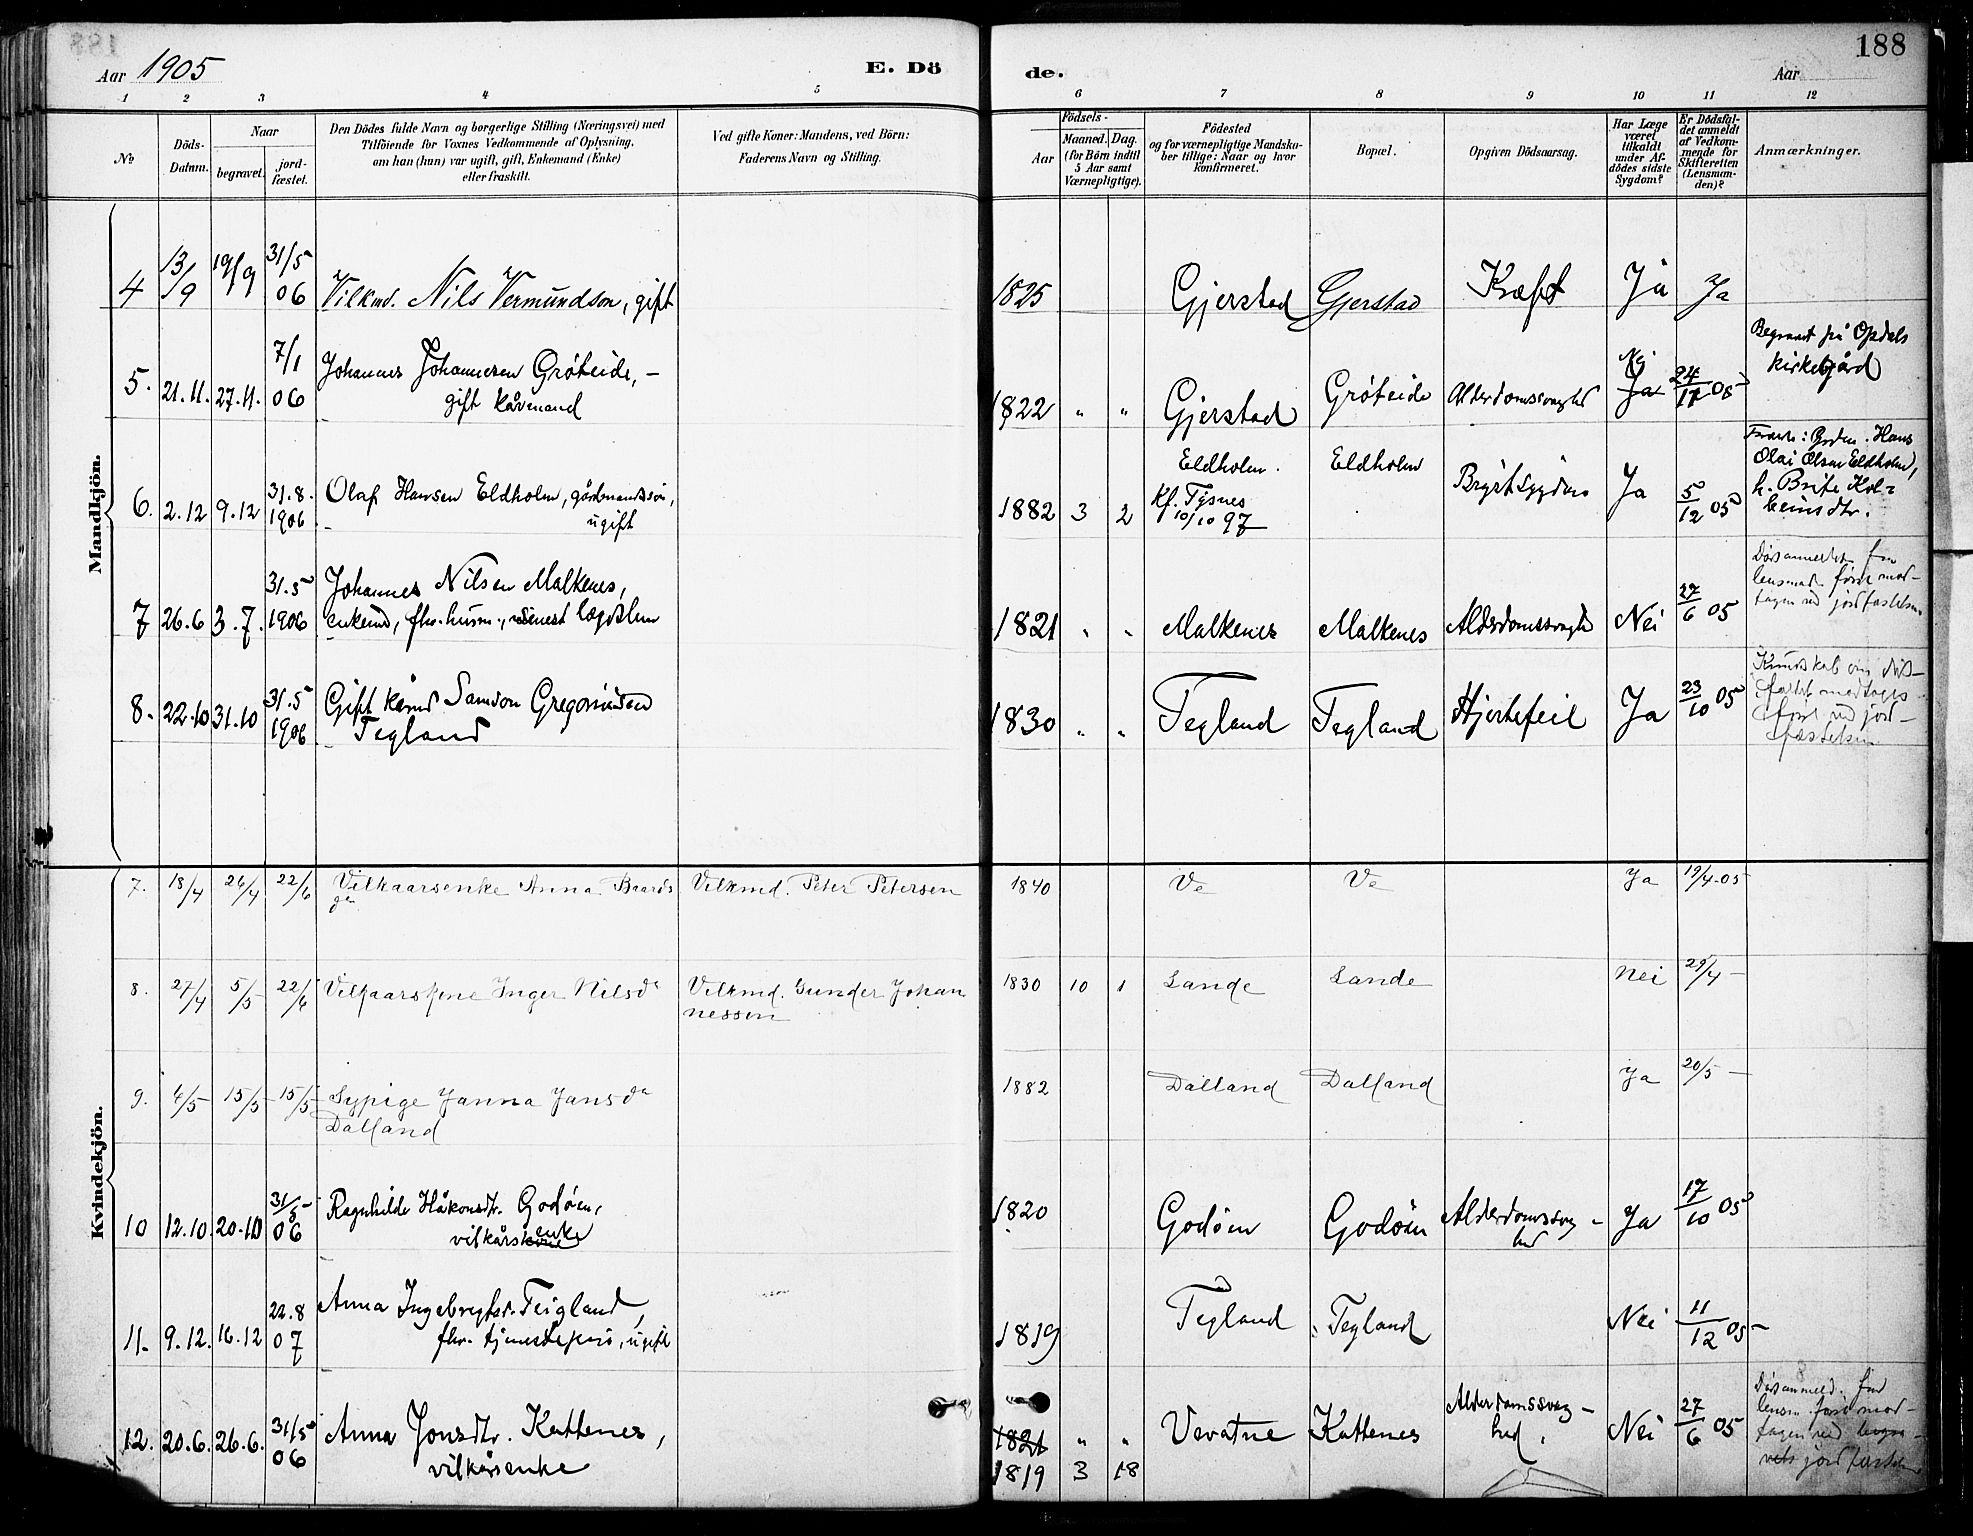 188
Aar 1905
E. Dö
de.
Aar
1 2 3 4 5 6 7 8 9 10 11 12
No
Döds-
Datum.
Naar
begravet.
jord-
fæstet.
Den Dödes fulde Navn og borgerlige Stilling (Næringsvei) med
Tilföiende for Voxnes Vedkommende af Oplysning,
om han (hun) var ugift, gift, Enkemand (Enke)
eller fraskilt.
Ved gifte Koner: Mandens, ved Börn:
Faderens Navn og Stilling.
Födsels-
Aar
Maaned. Dag.
(for Börn indtil
5 Aar samt
Værnepligtige).
Födested
og for værnepligtige Mandska-
ber tillige: Naar og hvor
konfirmeret.
Bopæl.
Opgiven Dödsaarsag.
Har Læge
været
tilkaldt
under Af-
dödes sidste
Sygdom?
Er Dödsfal-
det anmeldt
af Vedkom-
mende for
Skifteretten
(Lensman-
den)?
Anmærkninger.
Mandkjön.
4 13/9 19/9 31/5 06 Vilkmd. Nils Vermundson, gift 1825 Gjerstad Gjerstad Kræft Ja Ja
5. 21.11. 27.11. 7/1 06 Johannes Johannesen Gróteide, –
gift kårmand
1822 " " Gjerstad Gróteide Alderdomssvaghed Nej Ja 24/11 05
Begravet på Opdals
kirkegård
6. 2.12 9.12 31.8. 1906 Olaf Hansen Eldholm, gårdmandssøn,
ugift
1882 3 2 Eldholm.
Kf. Tysnes
10/10 97
Eldholm Brystsygdom Ja 5/12 05
Hans
Olai Olsen Eldholm,
h. Brite Kol-
beinsdtr.
7 26.6 3.7. 31.5 1906 Johannes Nilsen Malkenes,
enkemd, fhv. husm., senest lægdslem
1821 " " Malkenes Malkenes Alderdomssvaghed Nei 27/6 05
Dødsanmeldt. fra
lensmd. først mod-
tagen ved jordfæstelsen
8. 22.10 31.10 31.5 1906 Gift kårmd Samson Gregoriusen
Tegland
1830 " " Tegland Tegland Hjertefeil Ja 23/10 05
Kundskab om døds-
faldet modtages
først ved jord-
fæstelsen
Kvindekjön.
7. 18/4 26/4 22/6 Vilkaarsenke Anna Baards
dr
Vilkmd. Peter Petersen 1840 Ve Ve Ja 19/4-05
8. 27/4 5/5 22/6 Vilkaarskone Inger Nilsdr Vilkmd. Gunder Johan
nessen
1830 10 1 Lande Lande Nei 29/4 –
9. 4/5 15/5 15/5 Sypige Janna Jansdr
Dalland
1882 Dalland Dalland Ja 20/5 –
10 12.10. 20.10 31/5 06 Ragnhilde Håkonsdtr. Godóen,
vilkårsenke
1820 Godóen Godóen Alderdomssvag-
hed
Ja 17/10 05
11. 9.12. 16.12 22.8 07 Anna Ingebregtsd. Teigland,
fhv. tjenestepige, ugift
1819 Tegland Tegland Nei 11/12 05
12. 20.6. 26.6. 31/5 06 Anna Jonsdtr. Kattenes,
vilkårsenke
1821 " "
1819 3 18
Vevatne Kattenes Alderdomssvag-
hed.
Nei 27/6 05
Dødsanmeld. fra
lensm. først mod-
tagen ved
jordfæstelsen